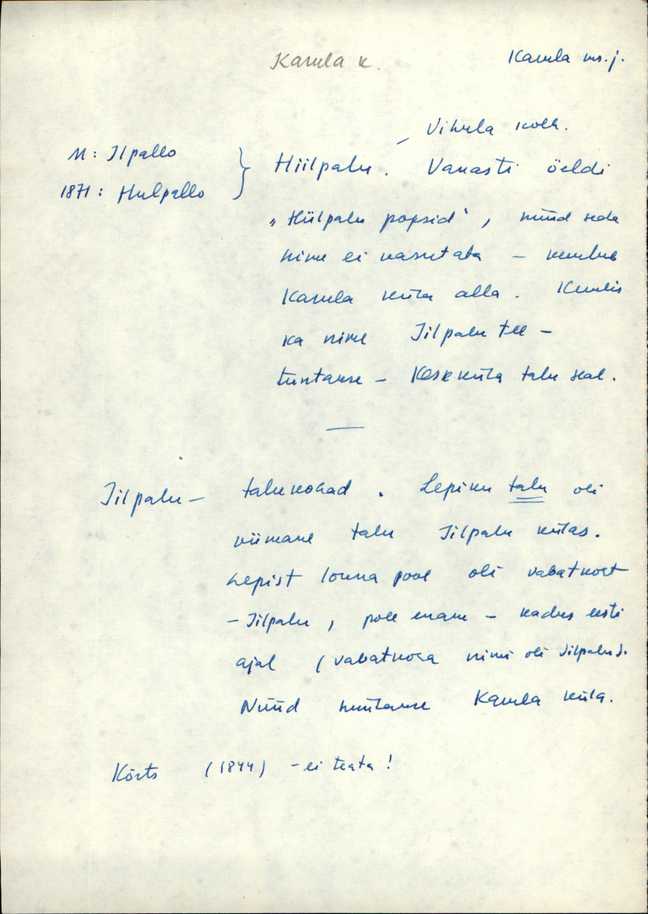 Karula k.
Karula ms.j.
Vihula kolh.
M: Ilpallo
1871: Hulpallo
Hiilpalu. Vanasti öeldi
„Hiilpalu popsid", nüüd seda
nime ei kasutata – kuulub
Karula küla alla. Kuulis
ka nime Iilpalu tee –
tuntakse – Keskküla talu seal.
Iilpalu – talukohad. Lepiku talu oli
viimane talu Iilpalu külas.
Lepist lõuna pool oli vabatkoht
– Iilpalu, pole enam – kadus eesti
ajal (vabatkoha nimi oli Iilpalu).
Nüüd hüütakse Karula küla.
Kõrts (1844) – ei teata!